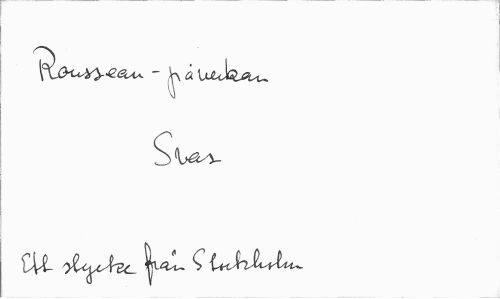 Rousseau-påverkan
Svar
Ett stycke från Stockholm